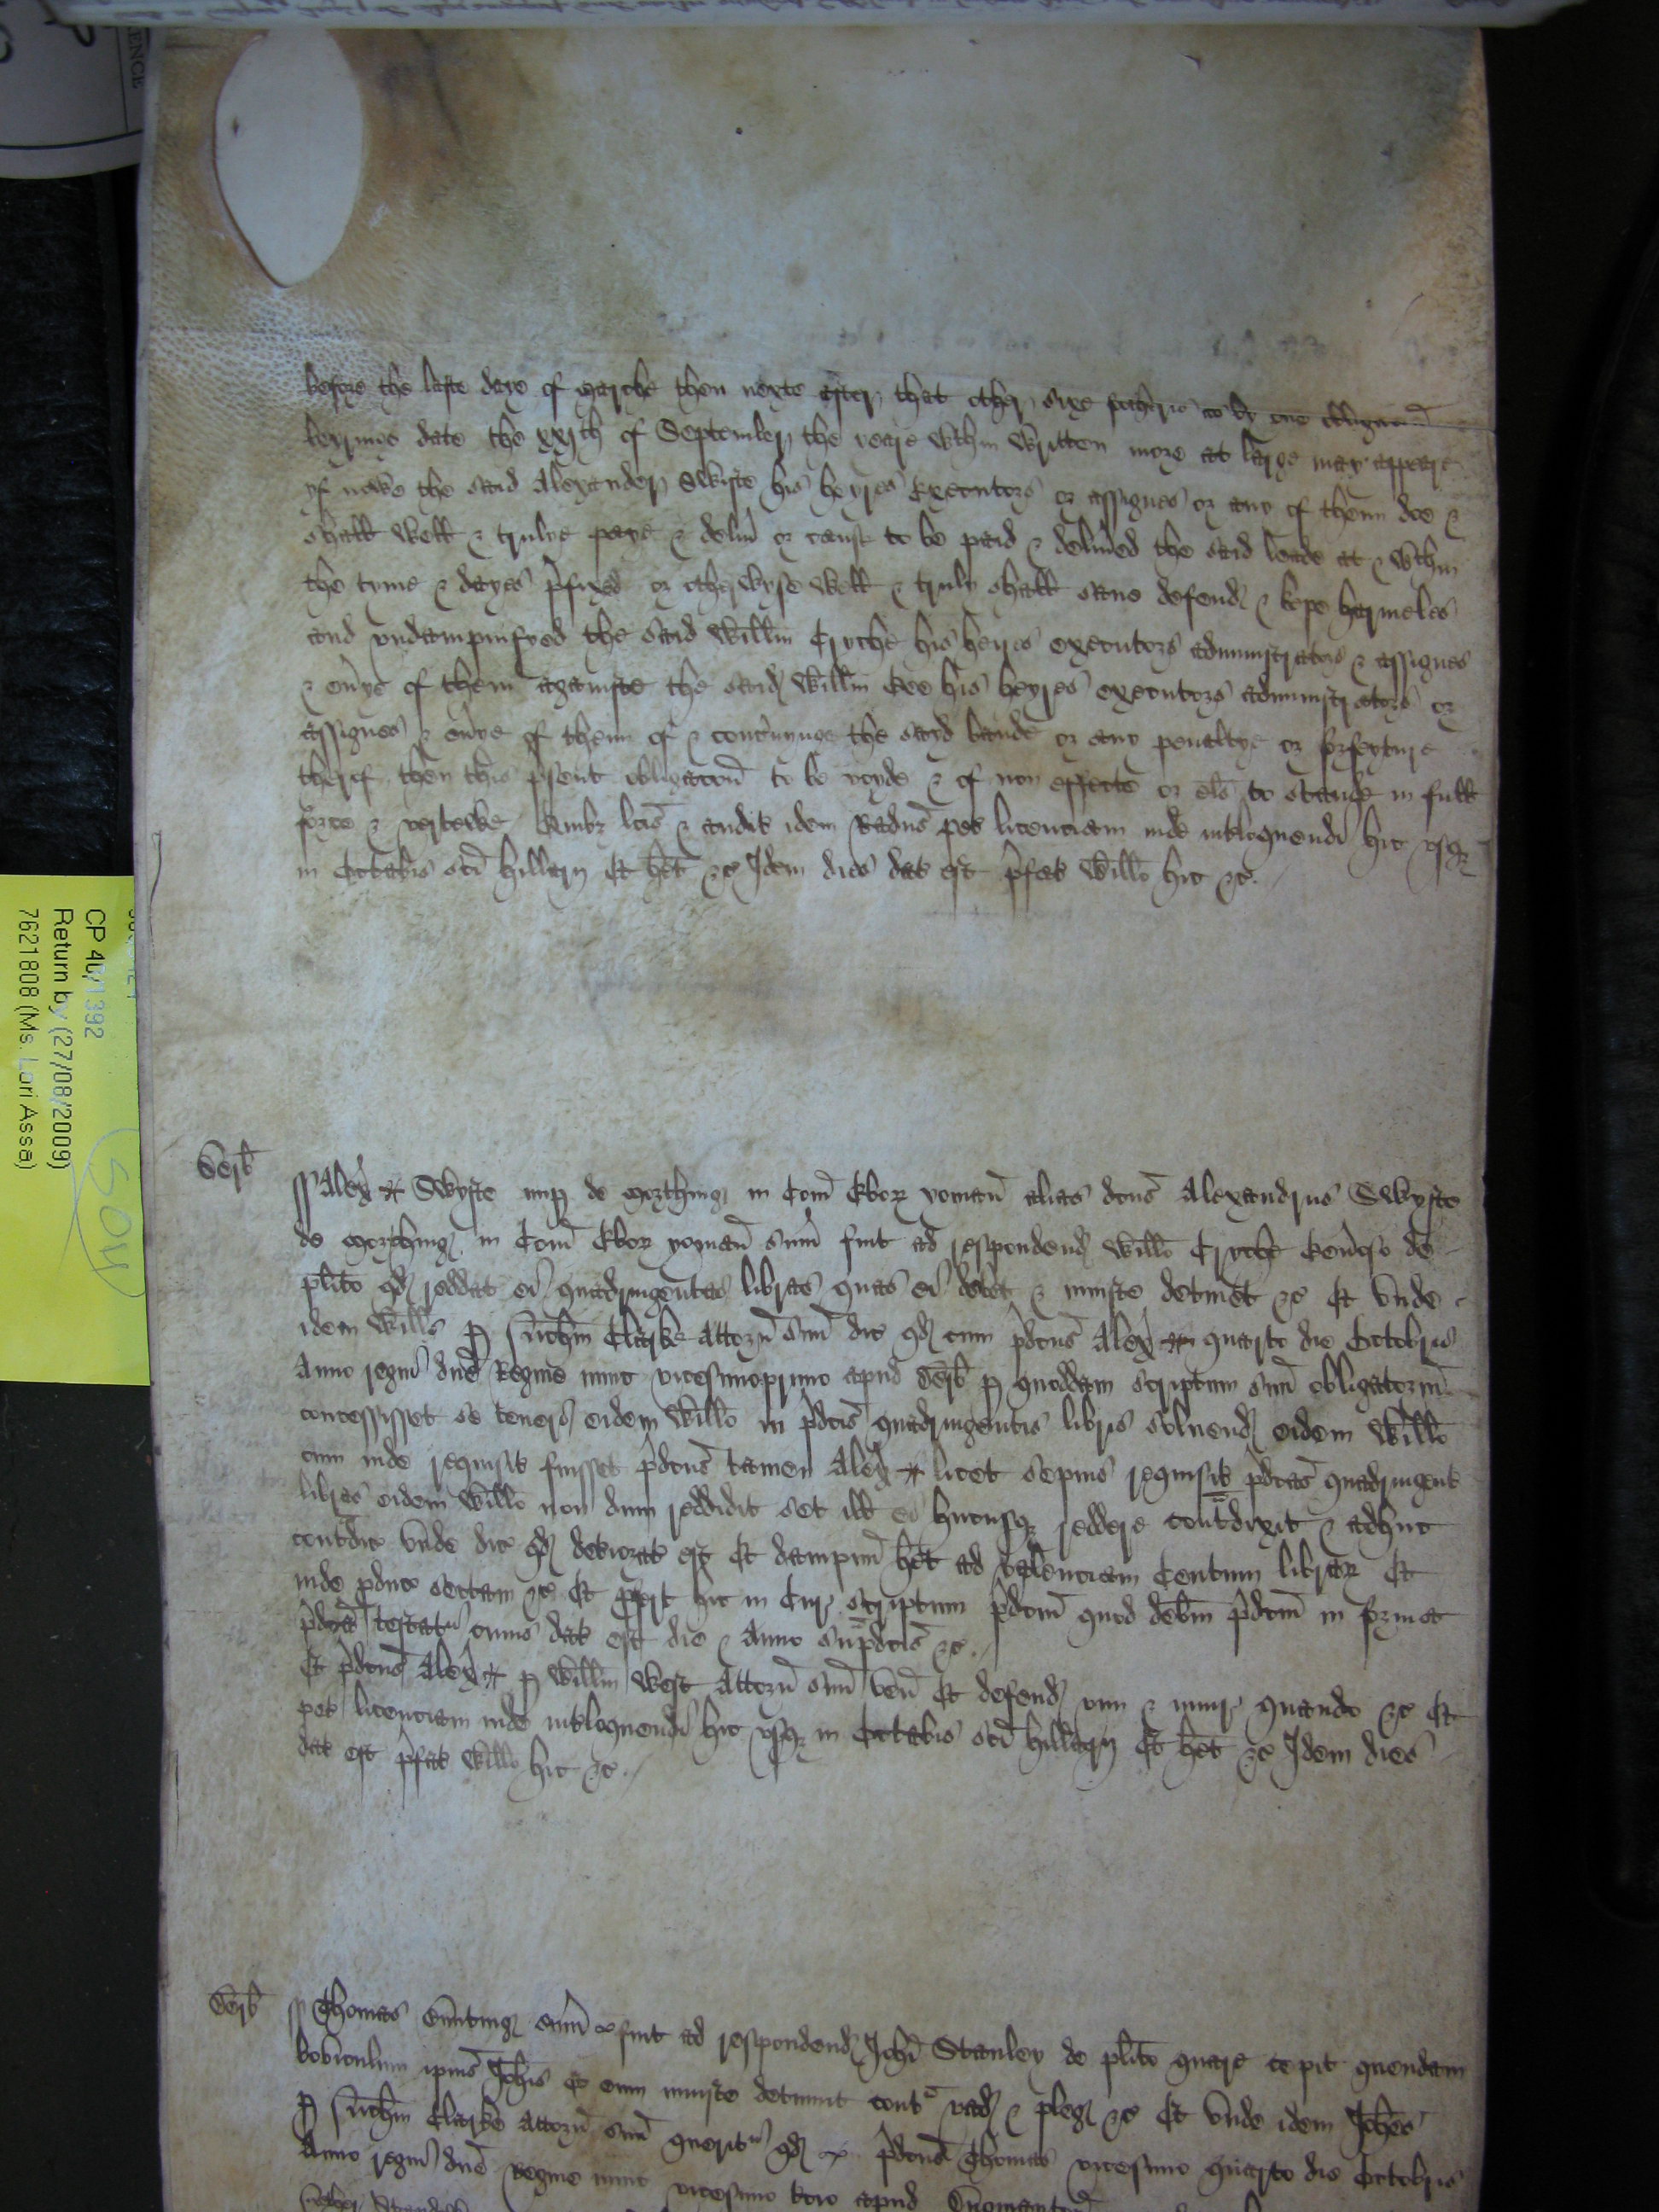 before the laste daye of Marche then nexte after that other sixe fothers as by one
beringe date the xxjth of September the yeare wthin written more at large may appeare
yf nowe the said Alexander Swifte his heyres Executors or assignes or any of them doe &
shall well & trulye paye & delivr or cause to be paid & delivred the said leade at & wthin
the tyme & dayes pfixed or otherwyse well & truly shall save defend & kepe harmeles
and undampnifyed the said Willm Cryche his heires executors administrators & assignes
& evrye of them againste the said Willm Kee his heyres executors administrators or
assignes & evrye of them of & concrnynge the sayd bande or any penaltye or forfeyture
therof then this psent obligacon to be voyde & of non effecte or els to stande in full
force & vertewe Quibz lcis & audit idem Radus pet licenciam inde intloquendi hic usqz
in Octabis sci Hillarij Et het &c Idem dies dat est pfat Willo hic &c.
Derb
Alex Swyfte nup de Morthing in Com Ebor yoman alias dcus Alexandrus Swyfte
de Morthing in Com Ebor yoman sum fuit ad respondend Willo Cryche genroso de
plito qd reddat ei quadringentas libras quas ei debet & iniuste detinet &c Et unde
idem Wills p Clarke Attorn suu dic qd cum pdcus Alex quarto die Octobris
Anno regni dne Regine nunc vicesimoprimo apud Derb p quoddam scriptum suu obligatoriu
concessisset se teneri eidem Willo in pdcis quadringentis libris solvend eidem Willo
cum inde requisit fuisset pdcus tamen Alex licet sepius requisit pdcas quadringent
libras eidem Willo non dum reddidit set ill ei hucusqz reddere contdixit & adhuc
contdic unde dic qd deteriorat est Et dampnu het ad valenciam Centum librar Et
inde pduc sectam &c Et pfert hic in Cur scriptum pdcm quod debm pdcm in forma
pdca testatr cuius dat est die & Anno supdcis &c.
Et pdcus Alex p Willm West Attorn suu ven Et defend vim & iniur quando &c Et
pet licenciam inde intloquendi hic usqz in Octabis sci Hillarij Et het &c Idem dies
dat est pfat Willo hic &c.
Derb
Thomas sum fuit ad respondend Johi Stanley de plito quare cepit quendam
boviculum ipius Johis & eum iniuste detinuit cont vad & pleg &c Et unde idem Johes
p Clarke Attorn suu queritr qd pdcus Thomas vicesimo quarto die Octobris
Anno regni dne Regine nunc vicesimo apud
CP 40/1392
Return by (27/08/2009)
7621808 (Ms. Lori Assa)